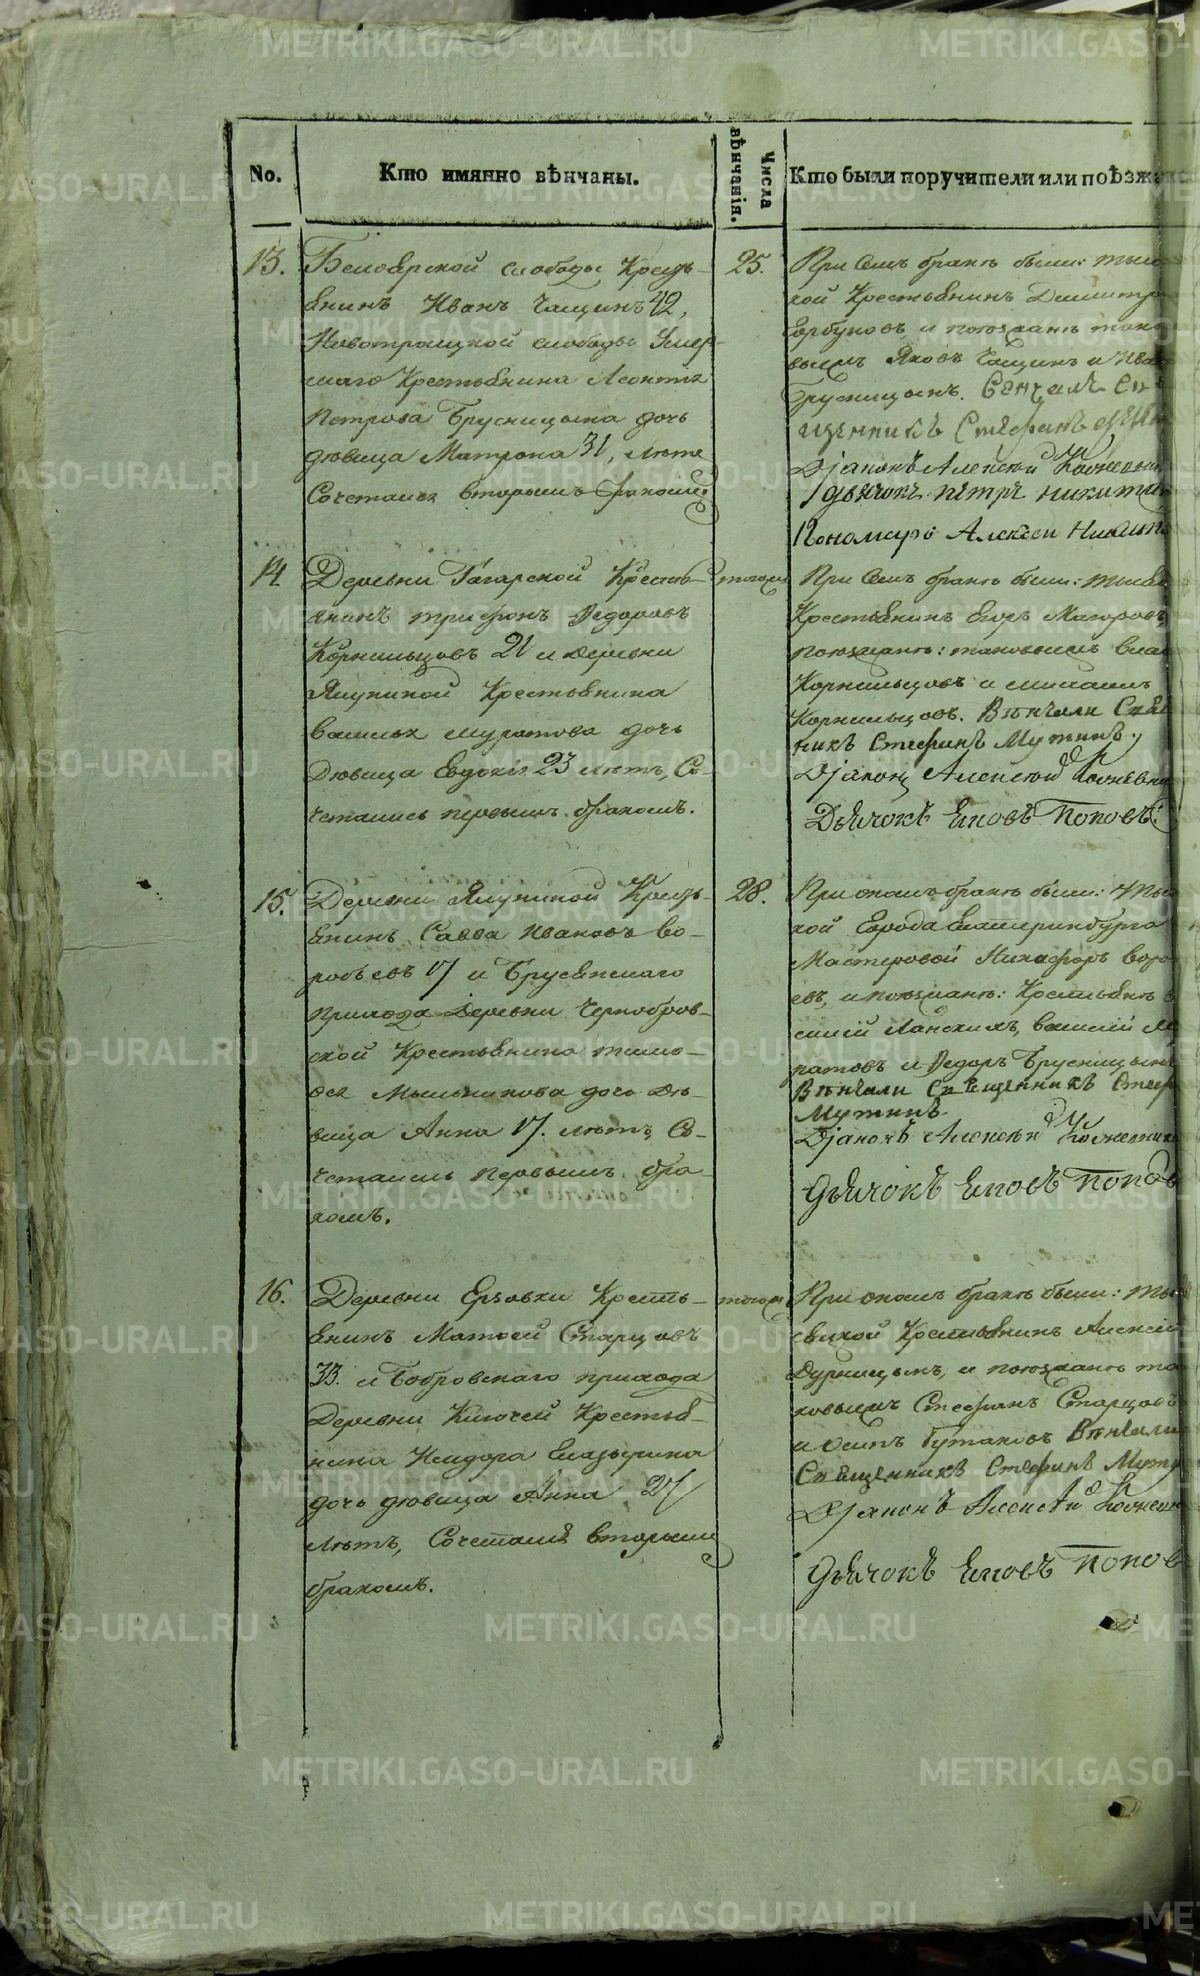 No.
Кто имянно вѣнчаны.
Числа вѣнчанія.
Кто были поручители или поѣзжа
13.
Белоярской слободы Кресть-
янинъ Иванъ Чащинъ 42,
Новотроицкой слободы Умер-
шаго Крестьянина Леонтья
Петрова Брусницына дочь
дѣвица Матрона 31, лѣтъ
Сочетался вторымъ бракомъ
25.
При семъ бракѣ были: тысяц
кой Крестьянинъ Димитр
Горбуновъ и поѣзжанѣ тако
выежъ Яковъ Чащинъ и Ива
Брусницынъ. Венчалъ Св
ященникъ Стефанъ
Діаконъ Алексѣй
дьячокъ петръ никитин
Пономарь Алексѣй Никит
14
Деревни Гагарской Кресть-
янинъ трифонъ Ѳедоровъ
Корнильцовъ 21 и деревни
Ялуниной Крестьянина
василья муратова дочь
Дѣвица Евдокія 23 лѣтъ, Со-
четались первымъ бракомъ.
тогожъ
При семъ бракѣ были: тысяц
Крестьянинъ Егоръ Макаровъ
поѣзжанѣ: таковыежъ
Корнильцовъ и михаилъ
Корнильцовъ. Вѣнчали Свящ
никъ Стефанъ Мутинъ.
Діаконъ Алексѣй
Дьячокъ Іаковъ Поповъ.
15.
Деревни Ялуниной Кресть-
янинъ Савва Ивановъ Во-
робьевъ 17 и Брусянскаго
прихода Деревни Чернобров-
ской Крестьянина тимо-
ѳея Мыльникова дочь дѣ-
вица Анна 17. лѣтъ, Со-
четались первымъ бра-
комъ.
28.
При ономъ бракѣ были: тыс
кой Города Екатеринбурга
Мастеровой Никифоръ воро
евъ, и поѣзжанѣ: Крестьянѣ
силій Ланскихъ, василій Му
ратовъ и Ѳедоръ Брусницынъ
Вѣнчали Священникъ Стеф
Мутинъ
Діаконъ Алексѣй
Дьячокъ Іаковъ Попов
16.
Деревни Ерзовки Кресть-
янинъ Матѳей Старцовъ
33. и Бобровскаго прихода
Деревни Ключей Крестья-
нина Исидора Глазырина
дочь дѣвица Анна 27
лѣтъ, Сочетался вторымъ
бракомъ.
тогожъ
При ономъ бракѣ были: тыс
яцкой Крестьянинъ Алексѣй
Дурницынъ, и поѣзжанѣ та
ковыежъ Стефанъ Старцовъ
и осипъ Бутаковъ Вѣнчали
Священникъ Стефанъ Мути
Діаконъ Алексѣй
Дьячокъ Іаковъ Попов